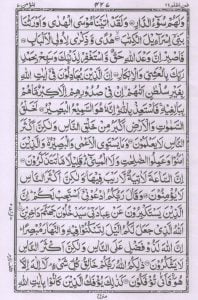 وَلَهُمْ سُوْٓءُ الدَّارِ وَلَقَدْ اٰتَيْنَا مُوْسَى الْهُدٰى وَاَوْرَثْنَا
بَنِيْٓ اِسْرَآءِيْلَ الْكِتٰبَ هُدًى وَّذِكْرٰى لِاُولِي الْاَلْبَابِ
فَاصْبِرْ اِنَّ وَعْدَ اللّٰهِ حَقٌّ وَّاسْتَغْفِرْ لِذَنْۢبِكَ وَسَبِّحْ بِحَمْدِ
رَبِّكَ بِالْعَشِيِّ وَالْاِبْكَارِ اِنَّ الَّذِيْنَ يُجَادِلُوْنَ فِيْٓ اٰيٰتِ اللّٰهِ
بِغَيْرِ سُلْطٰنٍ اَتٰىهُمْ اِنْ فِيْ صُدُوْرِهِمْ اِلَّا كِبْرٌ مَّا هُمْ
بِبَالِغِيْهِ فَاسْتَعِذْ بِاللّٰهِ اِنَّهٗ هُوَ السَّمِيْعُ الْبَصِيْرُ لَخَلْقُ
السَّمٰوٰتِ وَالْاَرْضِ اَكْبَرُ مِنْ خَلْقِ النَّاسِ وَلٰكِنَّ اَكْثَرَ
النَّاسِ لَا يَعْلَمُوْنَ وَمَا يَسْتَوِي الْاَعْمٰى وَالْبَصِيْرُ وَالَّذِيْنَ
اٰمَنُوْا وَعَمِلُوا الصّٰلِحٰتِ وَلَا الْمُسِيْٓءُ قَلِيْلًا مَّا تَتَذَكَّرُوْنَ
اِنَّ السَّاعَةَ لَاٰتِيَةٌ لَّا رَيْبَ فِيْهَا وَلٰكِنَّ اَكْثَرَ النَّاسِ
لَا يُؤْمِنُوْنَ وَقَالَ رَبُّكُمُ ادْعُوْنِيْٓ اَسْتَجِبْ لَكُمْ اِنَّ
الَّذِيْنَ يَسْتَكْبِرُوْنَ عَنْ عِبَادَتِيْ سَيَدْخُلُوْنَ جَهَنَّمَ دٰخِرِيْنَ
اَللّٰهُ الَّذِيْ جَعَلَ لَكُمُ الَّيْلَ لِتَسْكُنُوْا فِيْهِ وَالنَّهَارَ مُبْصِرًا
اِنَّ اللّٰهَ لَذُوْ فَضْلٍ عَلَى النَّاسِ وَلٰكِنَّ اَكْثَرَ النَّاسِ
لَا يَشْكُرُوْنَ ذٰلِكُمُ اللّٰهُ رَبُّكُمْ خَالِقُ كُلِّ شَيْءٍ لَآ اِلٰهَ اِلَّا
هُوَ فَاَنّٰى تُؤْفَكُوْنَ كَذٰلِكَ يُؤْفَكُ الَّذِيْنَ كَانُوْا بِاٰيٰتِ اللّٰهِ